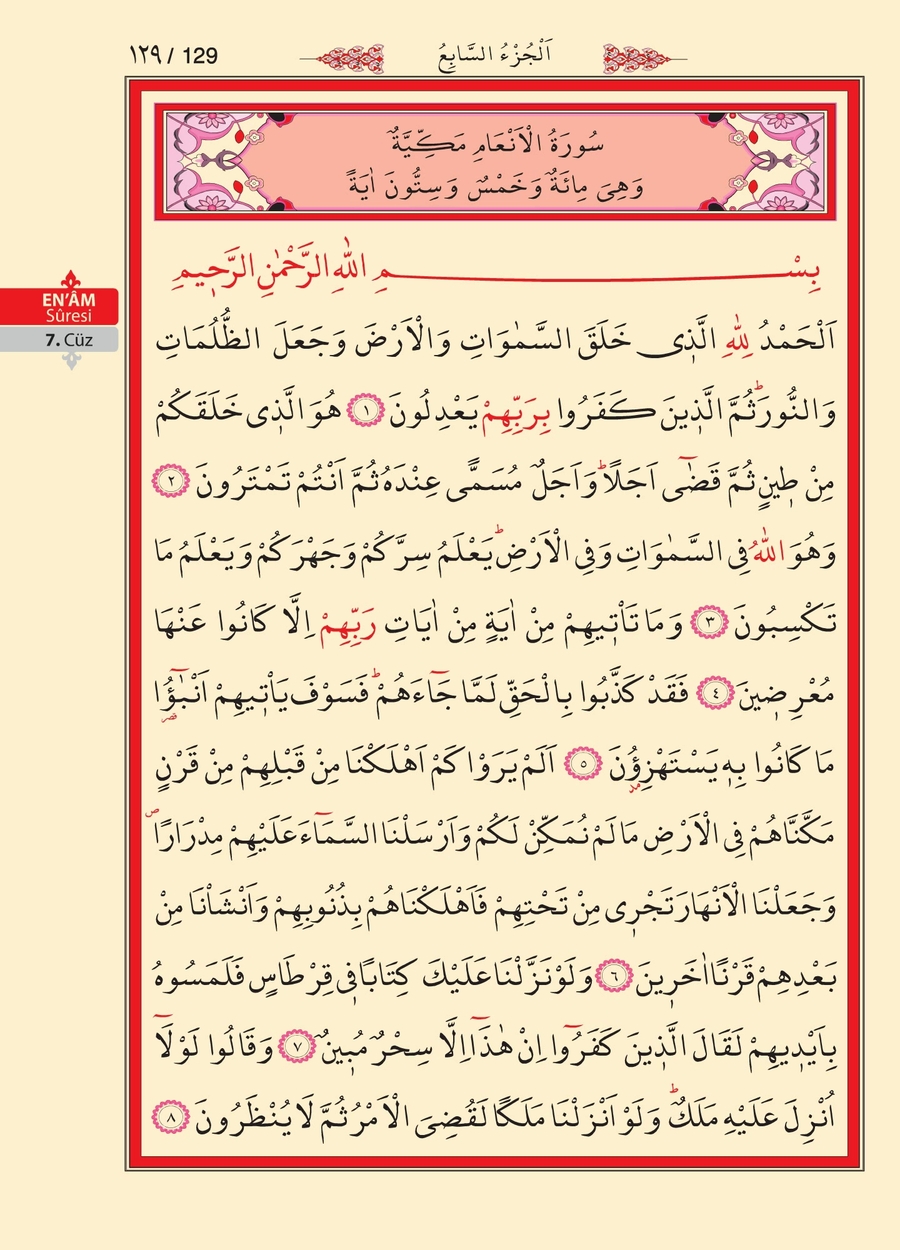 ١٢٩ / 129
اَلْجُزْءُ السَّابِعُ
سُورَةُ الْاَنْعَامِ مَكِّيَّةٌ
وَهِىَ مِائَةٌ وَخَمْسٌ وَسِتُّونَ اٰيَةً
EN'ÂM
Sûresi
7. Cüz
بِسْمِ اللّٰهِ الرَّحْمٰنِ الرَّحٖيمِ
اَلْحَمْدُ لِلّٰهِ الَّذٖى خَلَقَ السَّمٰوَاتِ وَالْاَرْضَ وَجَعَلَ الظُّلُمَاتِ
وَالنُّورَؕ ثُمَّ الَّذٖينَ كَفَرُوا بِرَبِّهِمْ يَعْدِلُونَ ﴿١﴾ هُوَ الَّذٖى خَلَقَكُمْ
مِنْ طٖينٍ ثُمَّ قَضٰٓى اَجَلًاؕ وَاَجَلٌ مُسَمًّى عِنْدَهُ ثُمَّ اَنْتُمْ تَمْتَرُونَ ﴿٢﴾
وَهُوَ اللّٰهُ فِى السَّمٰوَاتِ وَفِى الْاَرْضِؕ يَعْلَمُ سِرَّكُمْ وَجَهْرَكُمْ وَيَعْلَمُ مَا
تَكْسِبُونَ ﴿٣﴾ وَمَا تَاْتٖيهِمْ مِنْ اٰيَةٍ مِنْ اٰيَاتِ رَبِّهِمْ اِلَّا كَانُوا عَنْهَا
مُعْرِضٖينَ ﴿٤﴾ فَقَدْ كَذَّبُوا بِالْحَقِّ لَمَّا جَٓاءَهُمْؕ فَسَوْفَ يَاْتٖيهِمْ اَنْبٰٓؤُ۬ا
مَا كَانُوا بِهٖ يَسْتَهْزِؤُ۫نَ ﴿٥﴾ اَلَمْ يَرَوْا كَمْ اَهْلَكْنَا مِنْ قَبْلِهِمْ مِنْ قَرْنٍ
مَكَّنَّاهُمْ فِى الْاَرْضِ مَا لَمْ نُمَكِّنْ لَكُمْ وَاَرْسَلْنَا السَّمَٓاءَ عَلَيْهِمْ مِدْرَارًاۖ
وَجَعَلْنَا الْاَنْهَارَ تَجْرٖى مِنْ تَحْتِهِمْ فَاَهْلَكْنَاهُمْ بِذُنُوبِهِمْ وَاَنْشَاْنَا مِنْ
بَعْدِهِمْ قَرْنًا اٰخَرٖينَ ﴿٦﴾ وَلَوْ نَزَّلْنَا عَلَيْكَ كِتَابًا فٖى قِرْطَاسٍ فَلَمَسُوهُ
بِاَيْدٖيهِمْ لَقَالَ الَّذٖينَ كَفَرُٓوا اِنْ هٰذَٓا اِلَّا سِحْرٌ مُبٖينٌ ﴿٧﴾ وَقَالُوا لَوْلَٓا
اُنْزِلَ عَلَيْهِ مَلَكٌؕ وَلَوْ اَنْزَلْنَا مَلَكًا لَقُضِىَ الْاَمْرُ ثُمَّ لَا يُنْظَرُونَ ﴿٨﴾